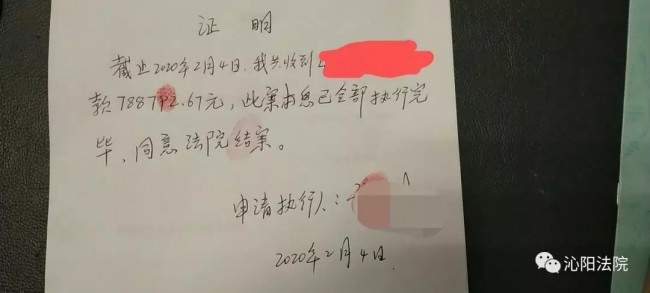 证 明
截止2020年2月4日,我共收到
款788792.67元,此案本息已全部执行完
毕,同意法院结案。
申请执行人:
2020年2月4日
沁阳法院